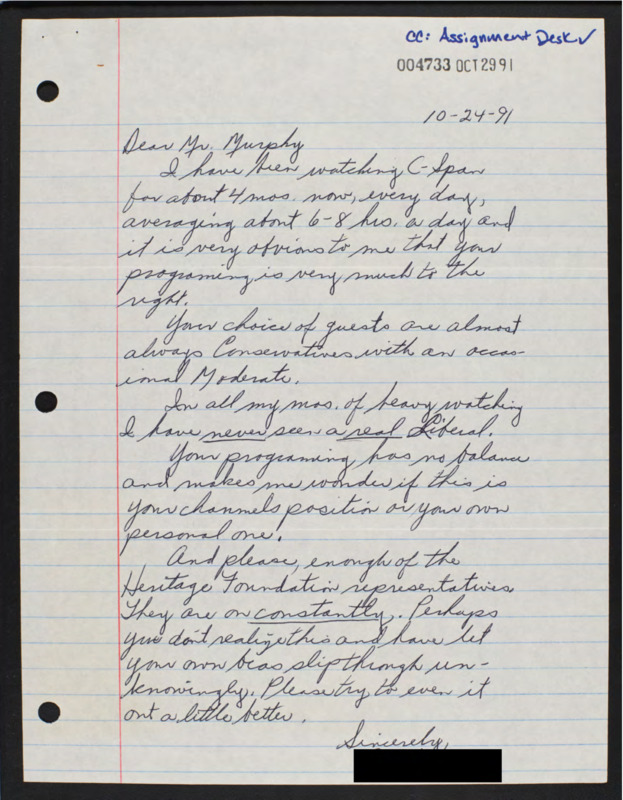 CC: Assignment Desk ✓
004733 OCT 29 91
10-24-91
Dear Mr. Murphy
I have been watching C-Span
for about 4 mos. now, every day,
averaging about 6-8 hrs. a day and
it is very obvious to me that your
programing is very much to the
right.
Your choice of guests are almost
always Conservatives with an occas-
ional Moderate.
In all my mos. of heavy watching
I have never seen a real Liberal.
Your programing has no balance
and makes me wonder if this is
your channels position or your own
personal one!
And please, enough of the
Heritage Foundation representatives.
They are on constantly. Perhaps
you don't realize this and have let
your own bias slip through un-
knowingly. Please try to even it
out a little better.
Sincerely,